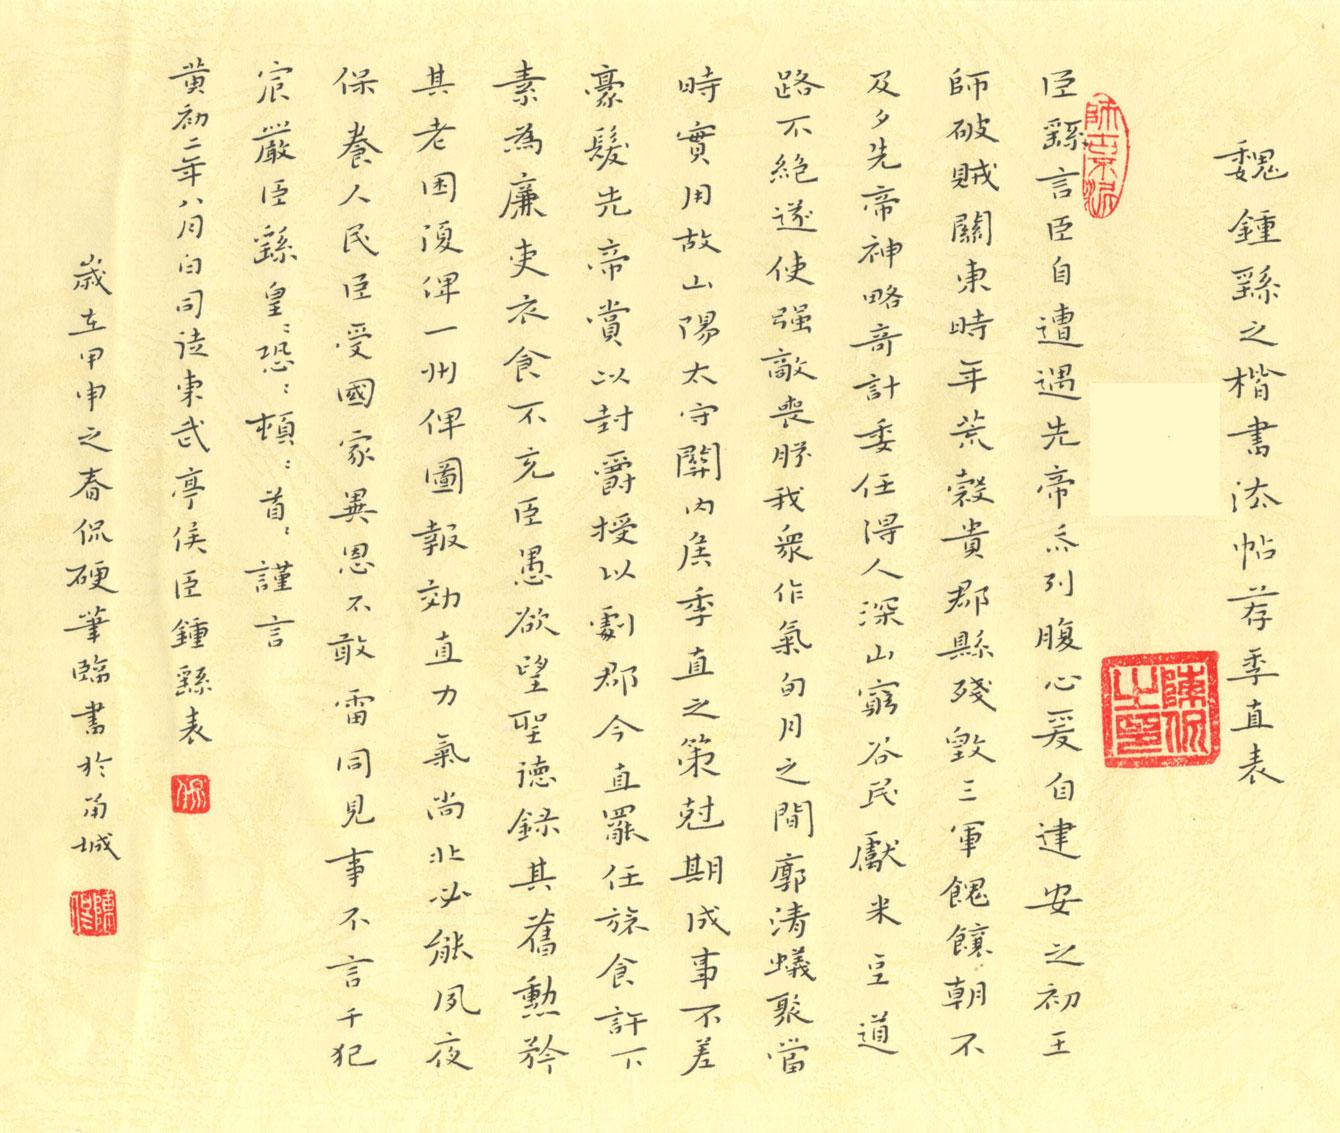 魏鍾繇之楷書法帖荐季直表
臣繇言臣自遭遇先帝忝列腹心爰自建安之初王
師破賊關東時年荒穀貴郡縣殘毀三軍餽饟朝不
及夕先帝神略奇計委任得人深山窮谷民獻米豆道
路不絕遂使强敵喪膽我眾作氣旬月之間廓清蟻聚當
時實用故山陽太守關內侯季直之策尅期成事不差
豪髮先帝賞以封爵授以劇郡今直罷任旅食許下
素為廉吏衣食不充臣愚欲望聖德錄其舊勳矜
其老困復俾一州俾圖報效直力氣尚壯必能夙夜
保養人民臣受國家異恩不敢雷同見事不言干犯
宸嚴臣繇皇〻恐〻頓〻首〻謹言
黃初二年八月日司徒東武亭侯臣鍾繇表
歲在甲申之春侃硬筆臨書於甬城
陳侃之印
陳侃